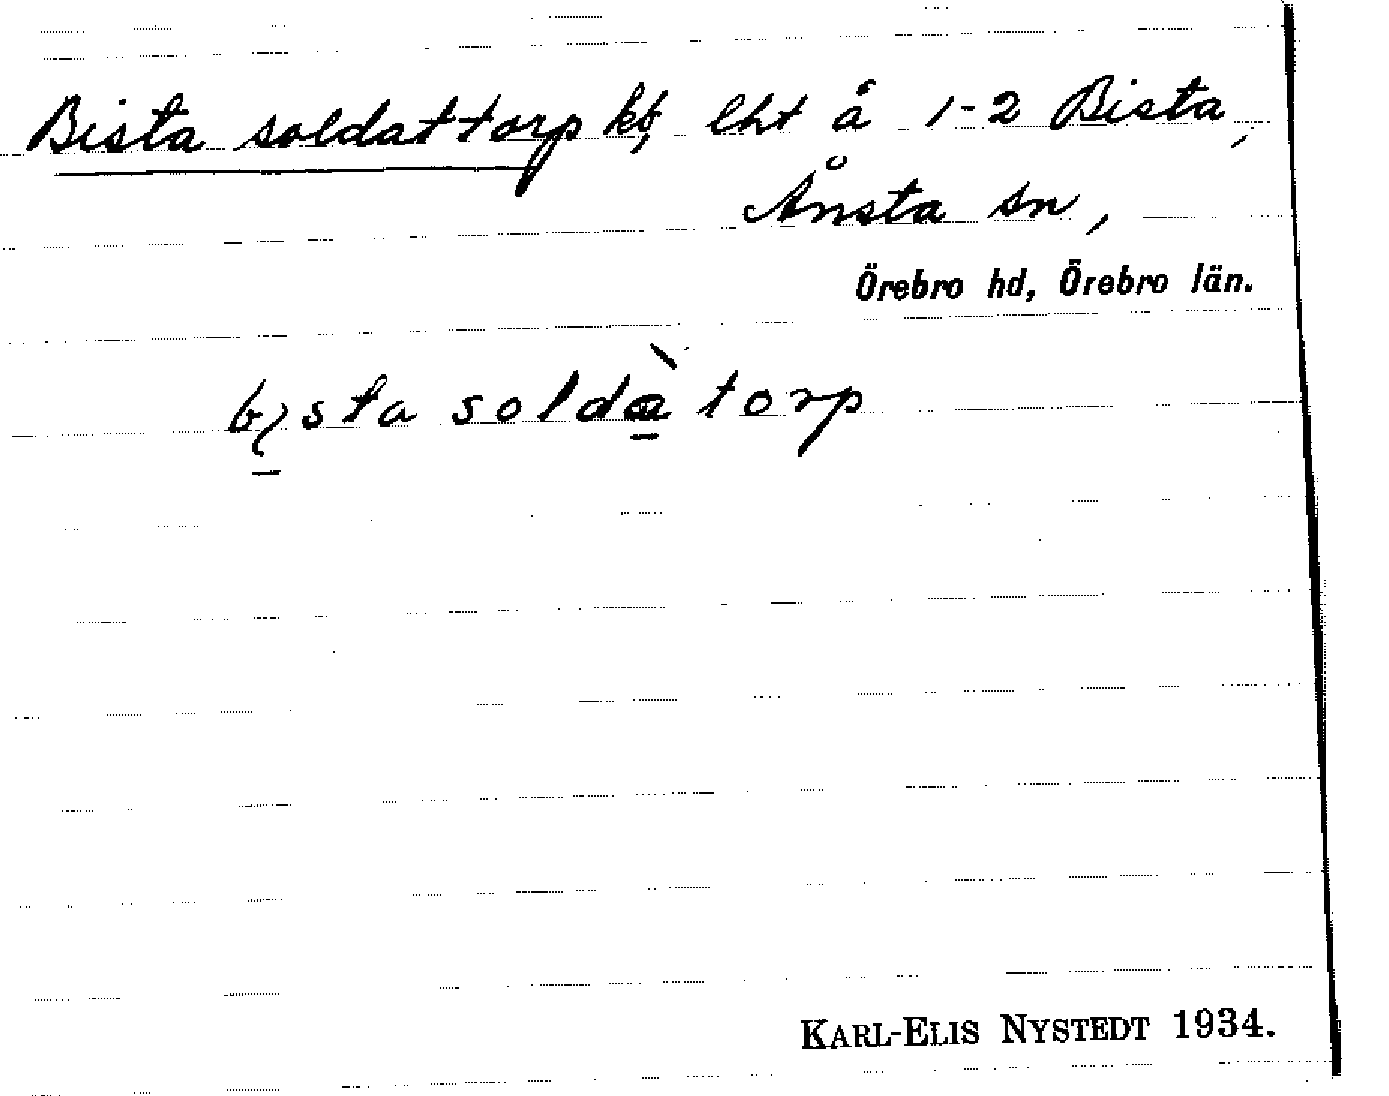 Bista soldattorp kt, lht å 1-2 Bista,
Ånsta sn,
Örebro hd, Örebro län.
soldàtorp
KARL-ELIS NYSTEDT 1934.